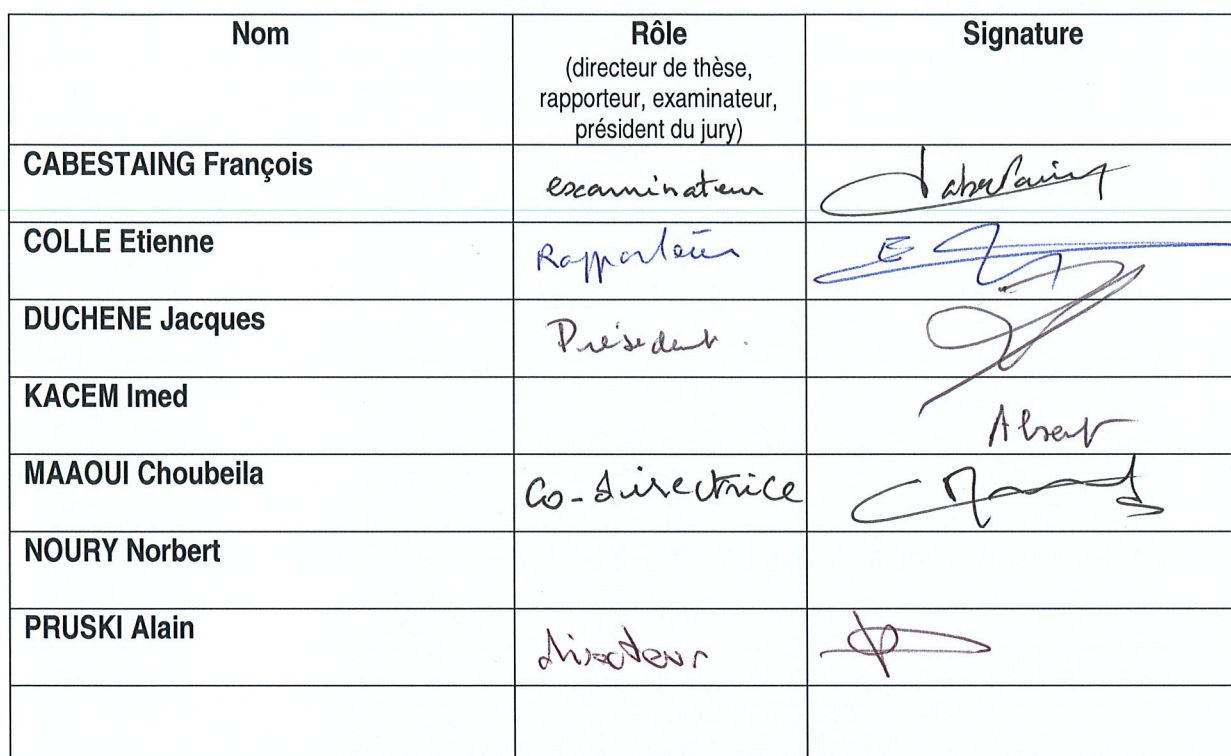 Nom Rôle Signature
(directeur de thèse,
rapporteur, examinateur,
président du jury)
CABESTAING François examinateur
COLLE Etienne Rapporteur
DUCHENE Jacques Président.
KACEM Imed Absent
MAAOUI Choubeila Co-directrice
NOURY Norbert
PRUSKI Alain directeur